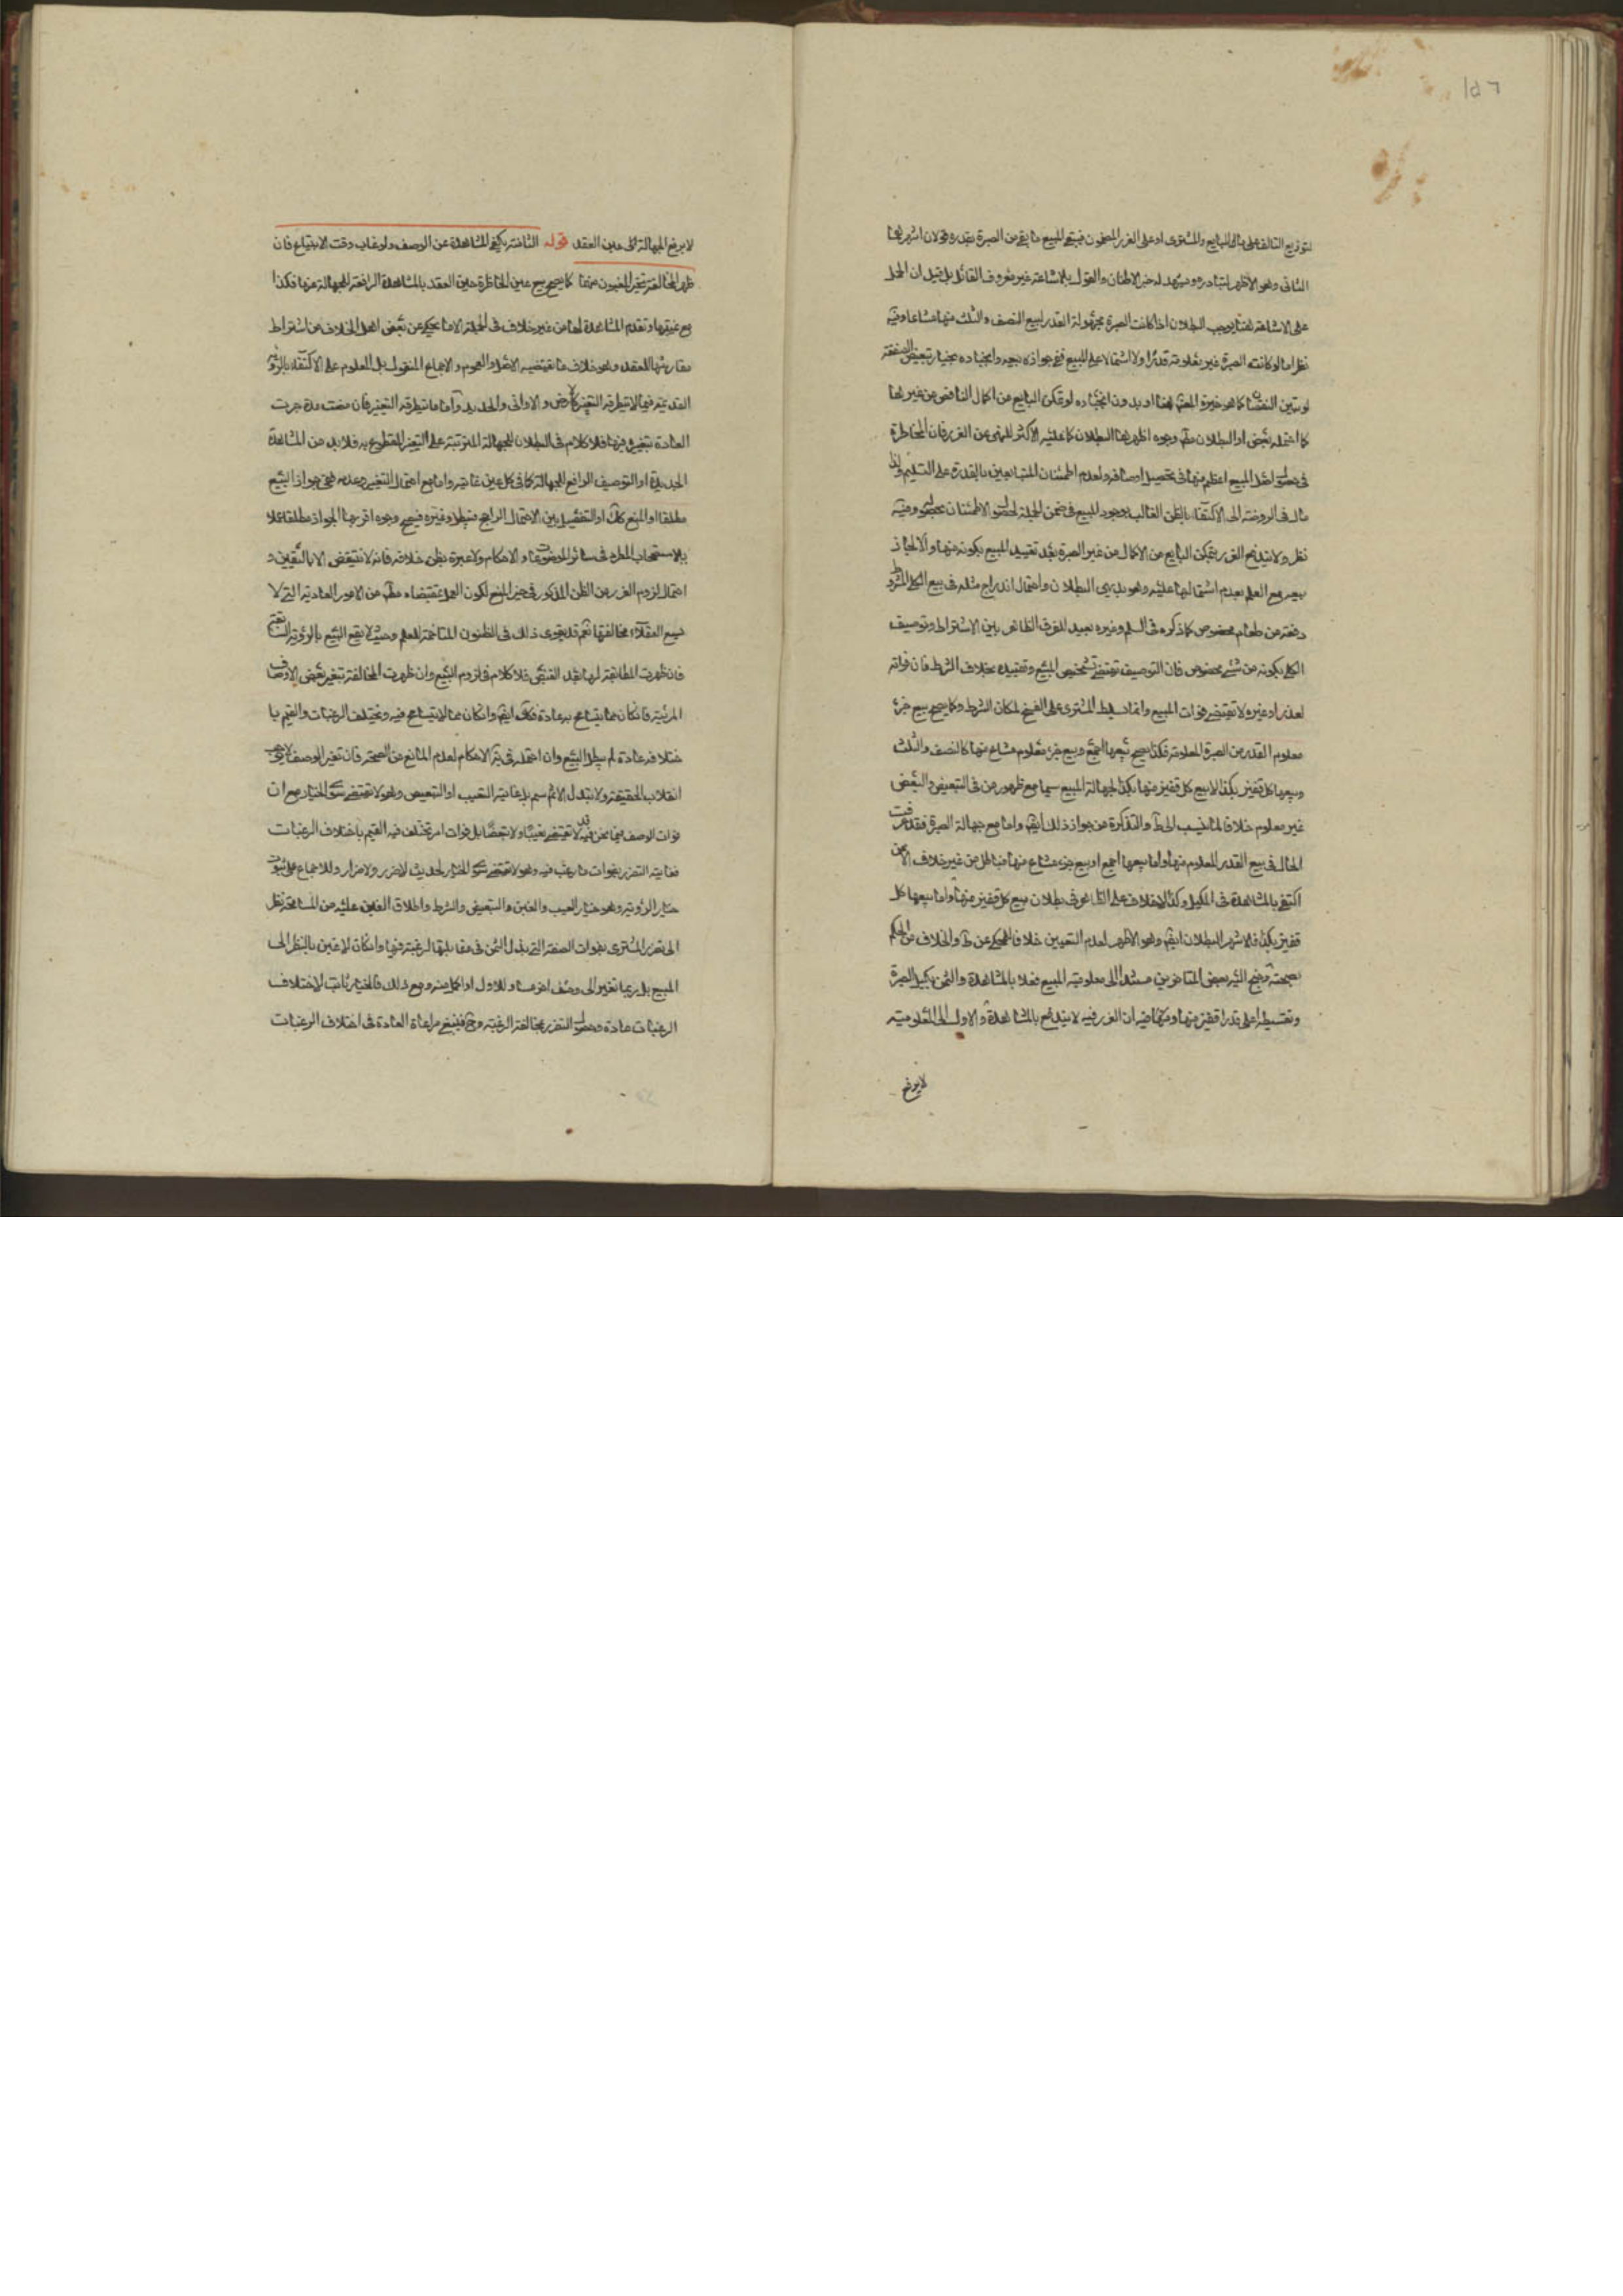 ١٥٦
لتوزيع التالف على مال البايع والمشترى او على الغرر المضمون فيبقى المبيع ما بقى من الصبرة بقدره وجهان اشهرهما
الثانى وهو الاظهر لتبادره ويشهد له خبر الاطنان والقول بالاشاعة غير معروف القائل بل قيل ان الحمل
على الاشاعة هنا يوجب البطلان اذا كانت الصبرة مجهولة القدر لبيع النصف والثلث منها مشاعا وفيه
نظر اما لو كانت الصبرة غير معلومة قدرا ولا اشتمالا على المبيع ففى جوازه بيعه وانجباره بخيار تبعيض الصفقة
لو تبين النقصان كما هو خيرة المص هنا او بدون انجباره لو تمكن البايع من اكمال الناقص من غيرها
كما احتمله بعض او البطلان مطم وجوه اظهرها البطلان كما عليه الاكثر للنهى عن الغرر فان المخاطرة
فى حصول اصل المبيع اعظم منها فى تحصيل اوصافه ولعدم اطمئنان المتبايعين بالقدرة على التسليم ولذا
مال فى الروضة الى الاكتفاء بالظن الغالب بوجود المبيع فى ضمن الجملة لحصول الاطمئنان بحصوله وفيه
نظر ولا يندفع الغرر بتمكن البايع من الاكمال من غير الصبرة بعد تقييد المبيع بكونه منها والا لجاز
بيعه مع العلم بعدم اشتمالها عليه وهو بديهى البطلان واحتمال اندراج مثله فى بيع الكلى المشروط
دفعه من طعام مخصوص كما ذكره فى السلم وغيره بعيد للفرق الظاهر بين الاشتراط وتوصيف
الكلى بكونه من شئ مخصوص فان التوصيف يقتضى تشخيص المبيع وتقييده بخلاف الشرط فان فواته
لعذر او غيره لا يقتضى فوات المبيع وانما يسلط المشترى على الفسخ لمكان الشرط وكما يصح بيع جزء
معلوم القدر من الصبرة المعلومة فكذا يصح بيعها اجمع وبيع جزء معلوم مشاع منها كالنصف والثلث
وبيعها كل قفيز بكذا لا بيع كل قفيز منها بكذا لجهالة المبيع سيما مع ظهور من فى التبعيض والبعض
غير معلوم خلافا لما نسب الى ط والتذكرة من جواز ذلك ايضم واما مع جهالة الصبرة فقد عرفت
الحال فى بيع القدر المعلوم منها واما بيعها اجمع او بيع جزء مشاع منها فباطل من غير خلاف الا ممن
اكتفى بالمشاهدة فى المكيل وكذا لا خلاف على الظاهر فى بطلان بيع كل قفيز منها واما بيعها كل
قفيز بكذا فالاشهر البطلان ايضم وهو الاظهر لعدم التعيين خلافا للمحكى عن ط والخلاف من الحكم
بصحته وجنح اليه بعض المتاخرين مستندا الى معلومية المبيع فعلا بالمشاهدة والثمن بكيل الصبرة
وتقسيطه على قدر اقفيز منها وفيهما فيه ان الغرر فيه لا يندفع بالمشاهدة والاول الى المعلومية
لا يرفع
لا يرفع الجهالة الى حين العقد قوله الثامنة يكفى المشاهدة عن الوصف ولو غاب وقت الابتياع فان
ظهر المخالفة تخير المغبون منهما كما يصح بيع عين الحاضرة حين العقد بالمشاهدة الرافعة للجهالة منها فكذا
مع غيبتها وتقدم المشاهدة لها من غير خلاف فى الجملة الا ما يحكى عن بعض اهل الخلاف من اشتراط
مقارنتها للعقد وهو خلاف ما يقتضيه الاصل والعموم والاجماع المنقول بل المعلوم على الاكتفاء بالرؤية
القديمة فيما لا يتطرقه التغير كالارض والاوانى والحديد واما ما يتطرقه التغير فان مضت مدة جرت
العادة بتغيره فيها فلا كلام فى البطلان للجهالة المترتبة على التغير المقطوع به فلا بد من المشاهدة
الجديدة او التوصيف الرافع للجهالة كما فى كل عين غائبة واما مع احتمال التغير وعدمه ففى جواز البيع
مطلقا او المنع كك او التفصيل بين الاحتمال الراجح فيبطل وغيره فيصح وجوه اقربها الجواز مطلقا عملا
بالاستصحاب المطرد فى سائر الموضوعات والاحكام ولا عبرة بظن خلافه فانه لا ينتقض الا باليقين و
احتمال لزوم الغرر من الظن المذكور فى حيز المنع لكون العمل بمقتضاه مطم من الامور العادية التى لا
يسع العقلاء مخالفتها نعم قد يقوى ذلك فى الظنون المتاخمة للعلم وحيث يقع البيع بالرؤية السابقة
فان ظهرت المطابقة لها بعد القبض فلا كلام فى لزوم البيع وان ظهرت المخالفة بتغير بعض الاوصاف
المرئية فان كان مما يتسامح به عادة فكك ايضم وان كان مما لا يتسامح فيه وتختلف الرغبات والقيم با
ختلافه عادة لم يبطل البيع وان احتمله فى نهاية الاحكام لعدم المانع من الصحة فان تغير الوصف لا يوجب
انقلاب الحقيقة ولا تبدل الاسم بل غايته التعيب او التبعيض وهو لا يقتضى سوى الخيار مع ان
فوات الوصف فيما نحن فيه قد لا يقتضى تعيبا ولا تبعضا بل فوات امر تختلف فيه القيم باختلاف الرغبات
فغايته التضرر بفوات ما رغب فيه وهو لا يقتضى سوى الخيار لحديث لا ضرر ولا ضرار وللاجماع على ثبوت
خيار الرؤية وهو خيار العيب والغبن والتبعيض والشرط واطلاق الغبن عليه من المسامحة نظرا
الى تضرر المشترى بفوات الصفة التى بذل الثمن فى مقابلتها لرغبته فيها وان كان لا غبن بالنظر الى
المبيع بل ربما تغير الى وصف اخر مساو للاول او اكمل منه ومع ذلك فالخيار ثابت لاختلاف
الرغبات عادة وحصول التضرر بمخالفة الرغبة وح فينبغى مراعاة العادة فى اختلاف الرغبات